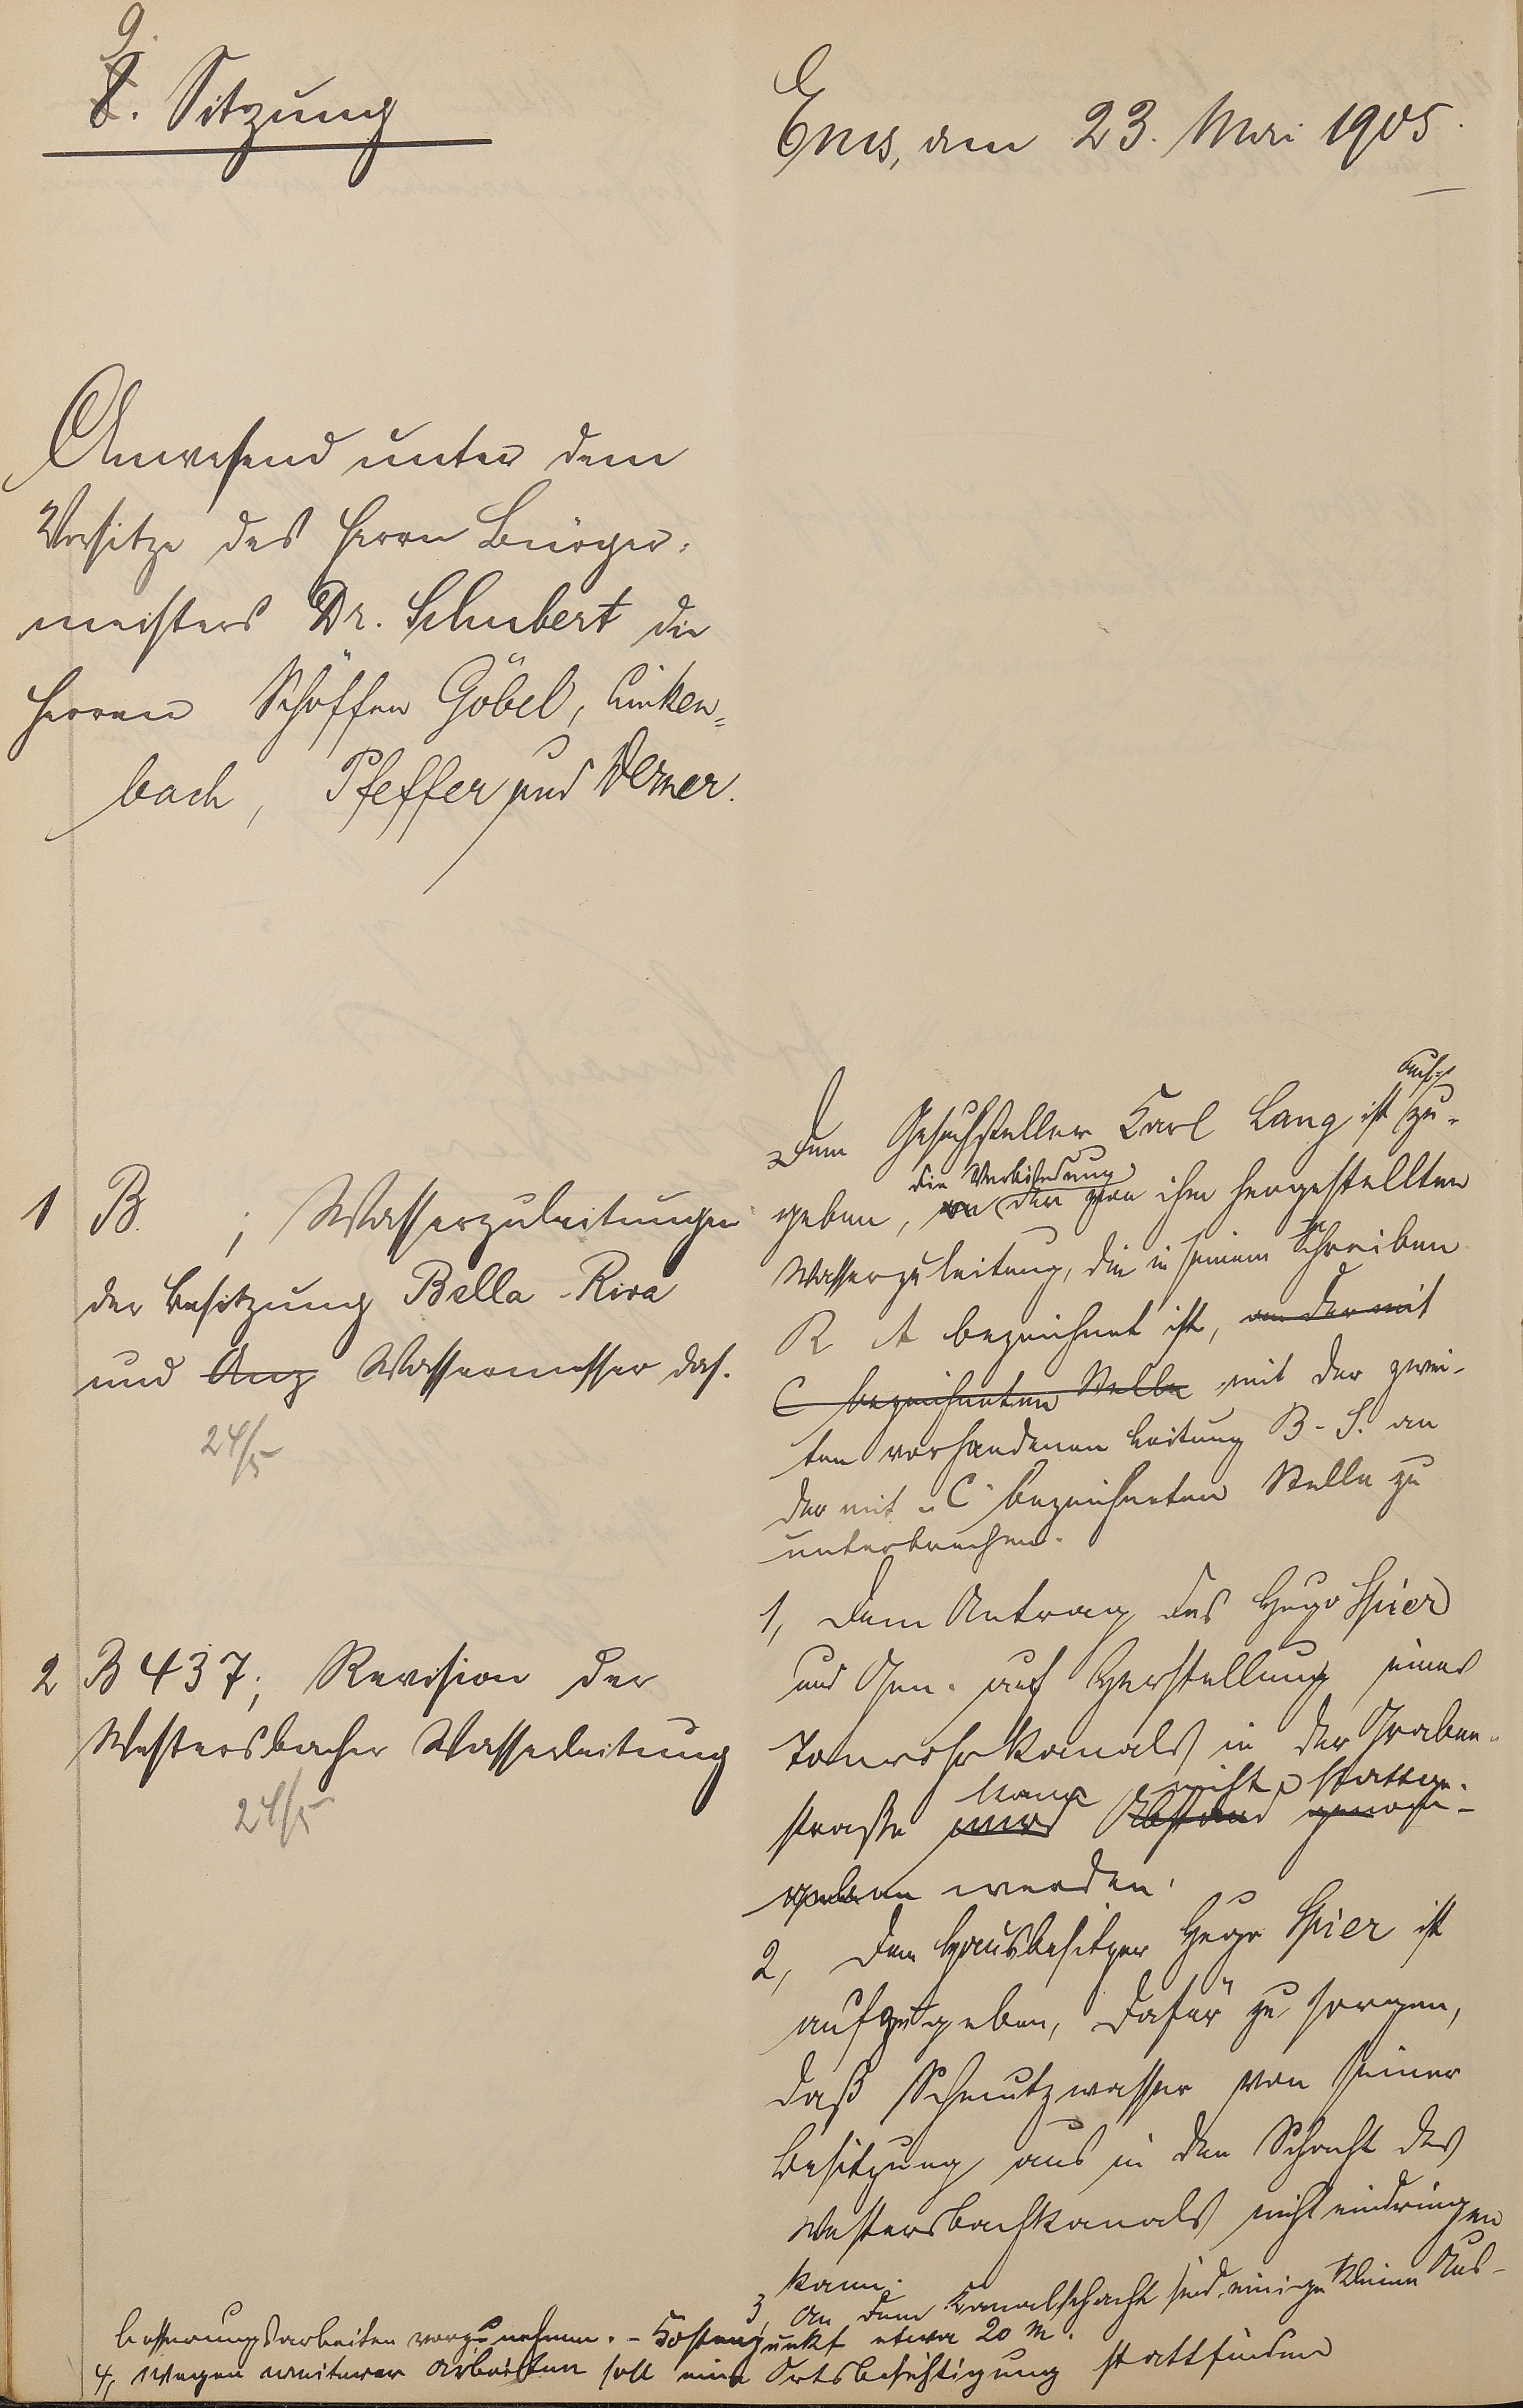 9.
8. Sitzung
Ems, am 23. Mai 1905.
Anwesend unter dem
Vorsitze des Herrn Bürger-
meisters Dr. Schubert die
Herren Schöffen Göbel, Linken=
bach, Pfeffer und Demer.
1 B. ; Wasserzuleitungen
der Besitzung Bella-Riva
und Anz Wassermesser das.
24/5
Dem Gesuchsteller Karl Lang ist aufzu-
geben, die Verbindung der von ihm hergestellten
Wasserzuleitung, die in seinem Schreiben
R A bezeichnet ist, an der mit
C bezeichneten Stelle mit der zwei-
ten vorhandenen Leitung B-S. an
der mit "C" bezeichneten Stelle zu
unterbrechen.
2 B 437; Revision der
Westersbacher Wasserleitung
24/5
1, Dem Antrag des Hugo Spier
und Gen. auf Herstellung eines
Tonrohrkanals in der Graben-
straße kann nicht stattge-
wird Abstand genom-
geben werden.
2, Dem Hausbesitzer Hugo Spier ist
aufzugeben, dafür zu sorgen,
daß Schmutzwasser von seiner
Besitzung aus in den Schacht des
Westersbachkanals nicht eindringen
kann.
3, An dem Kanalschacht sind einige kleine Aus-
besserungsarbeiten vorzunehmen. - Kostenpunkt etwa 20 M.
4, Wegen weiterer Arbeiten soll eine Ortsbesichtigung stattfinden